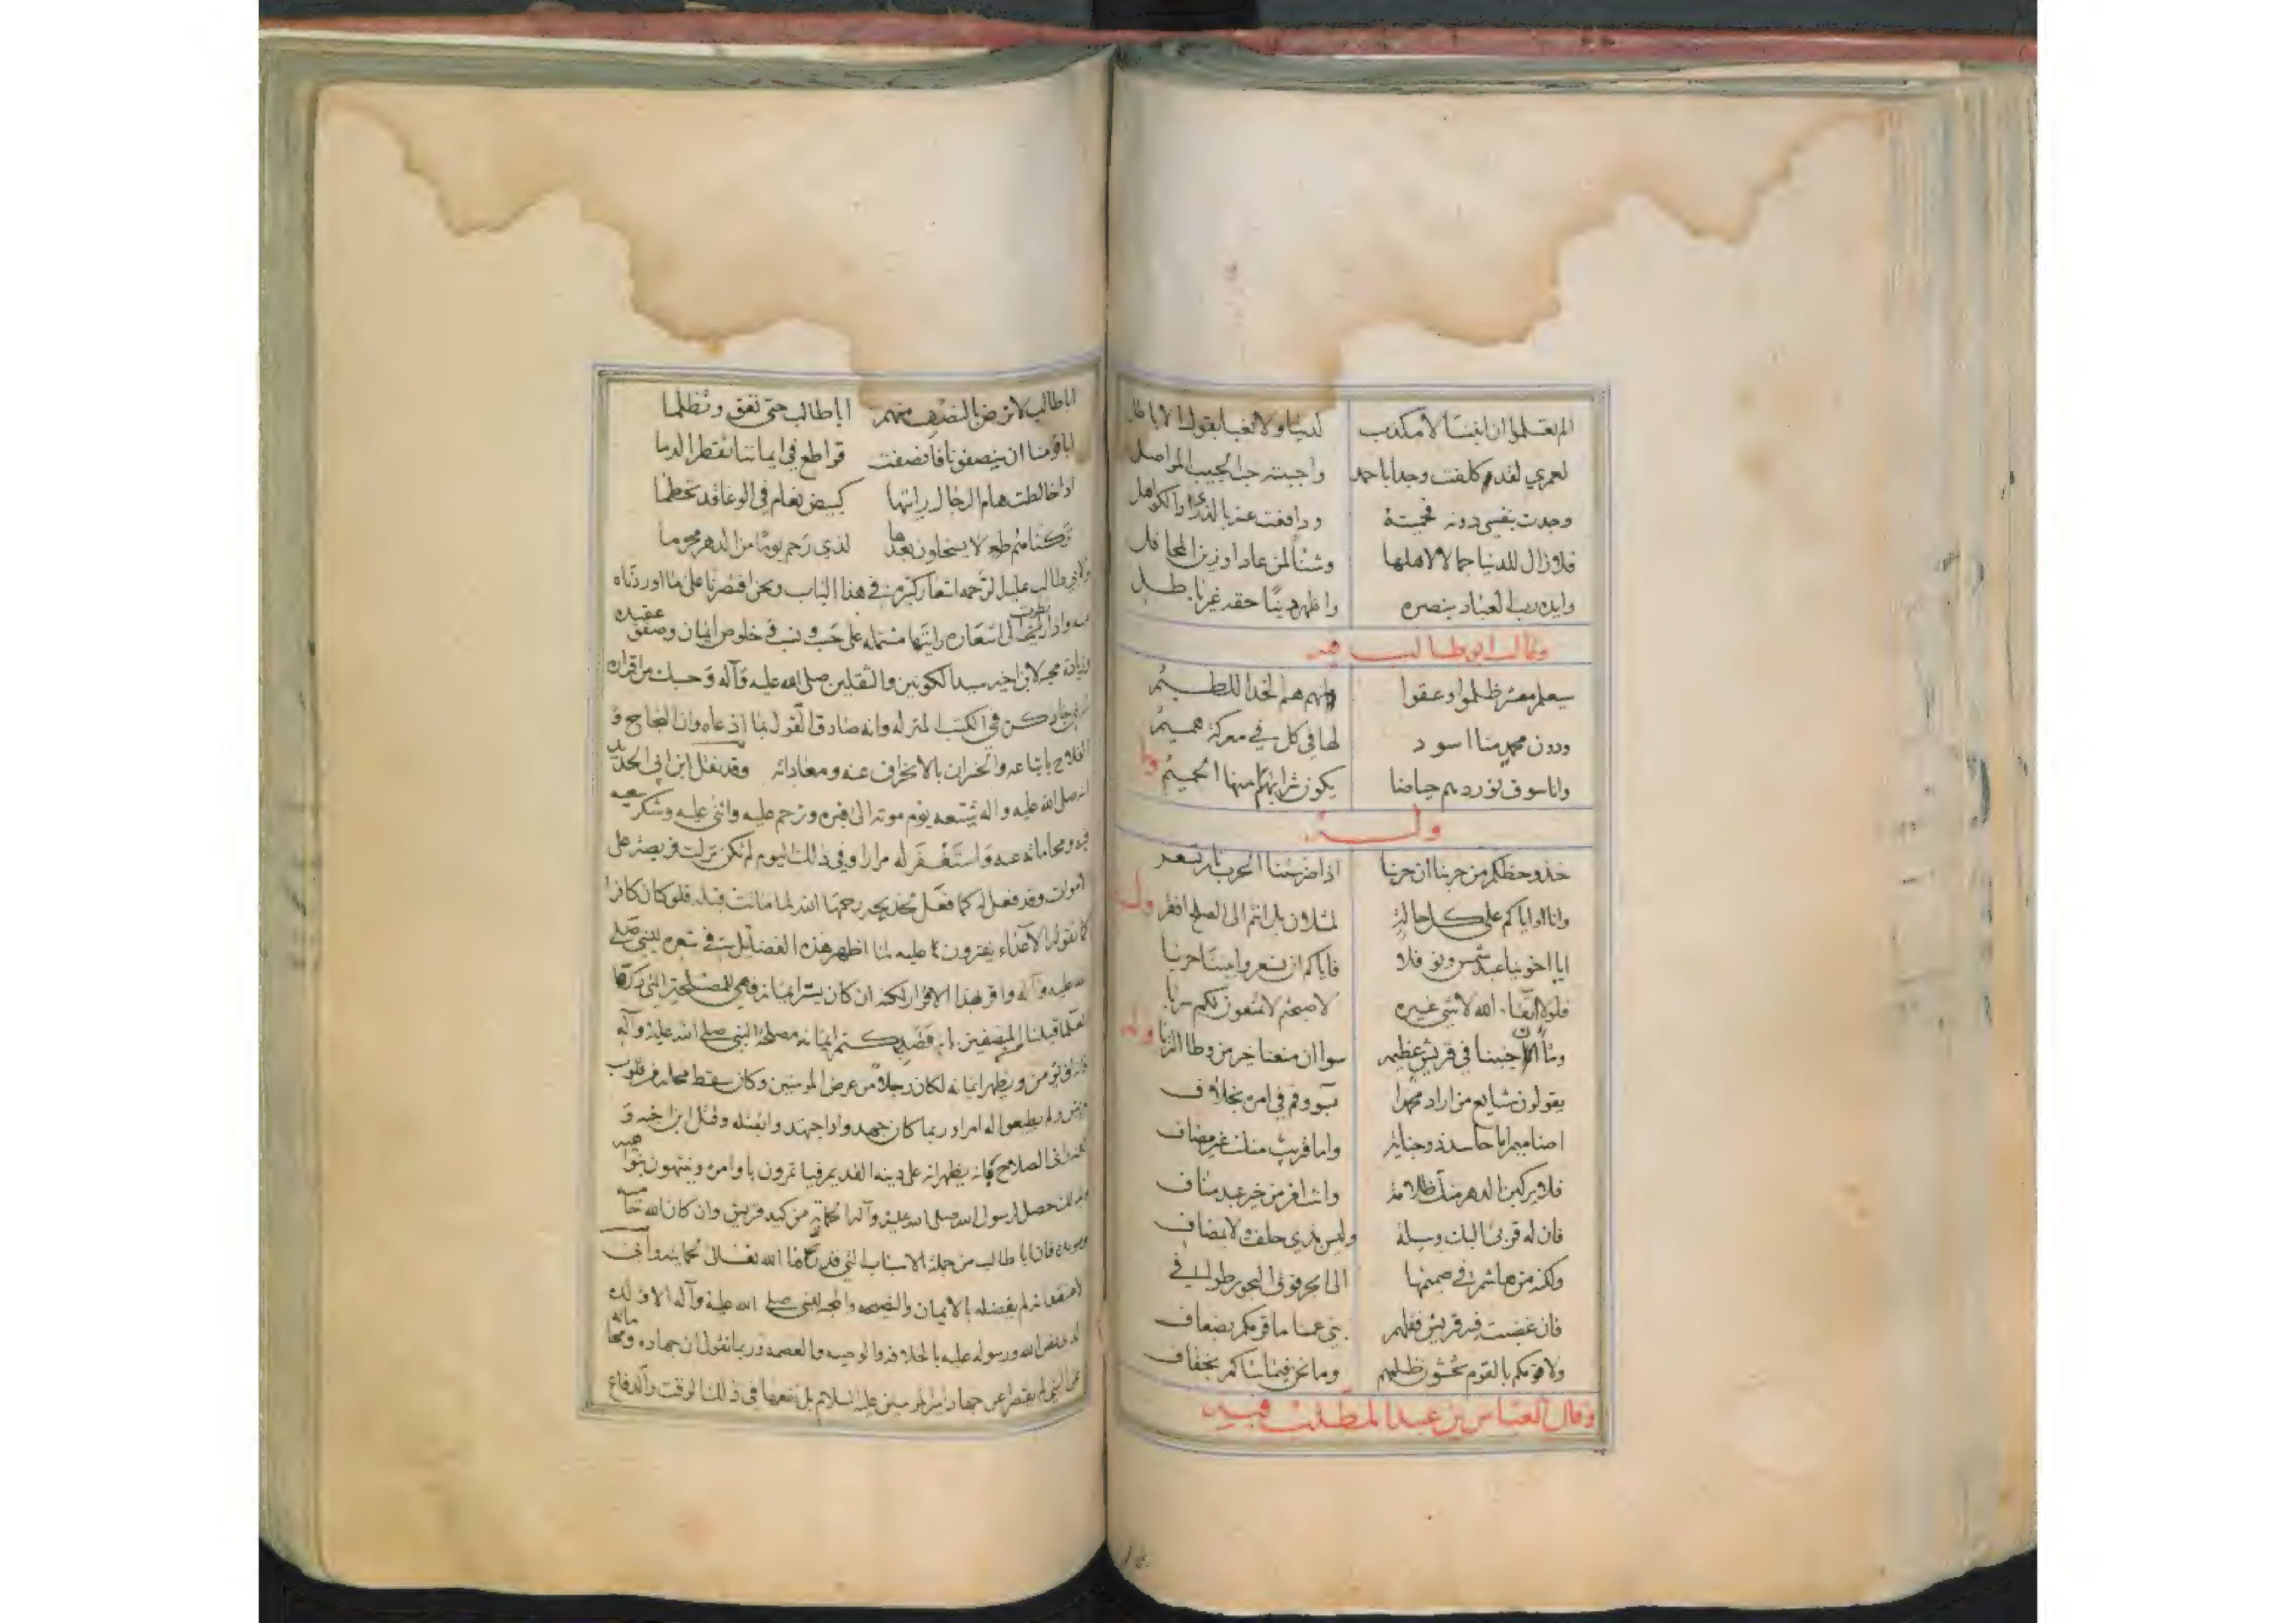 الم تعلموا ان ابننا لا مكذب لدينا ولا نعبا بقول الاباطل
لعمري لقد كلفت وجدا باحمد واحببته حب الحبيب المواصل
وجدت بنفسي دونه فحميته ودافعت عنه بالذرى والكواهل
فلا زال للدنيا جمالا لاهلها وشينا لمن عادا وزين المحافل
وايده رب العباد بنصره واظهر دينا حقه غير باطل
وقال ابو طالب
سيعلم معشر ظلموا وعقوا بانهم هم الخد اللطيم
ودون محمد منا اسود لها في كل معركة هميم
وانا سوف نوردهم حياضا يكون شرابهم منها الحميم
وله
خذوا حظكم من حربنا ان حربنا اذا ضرستنا الحرب نار تسعر
وانا واياكم على كل حالة لمثلان بل انتم الى الصلح افقر
ايا اخوينا عبد شمس ونوفلا فاياكم ان تسعروا بيننا حربا
فلولا اتقاء الله لا شي غيره لاصبحتم لا تمنعون لكم سربا
وما ان جنينا في قريش عظيمه سوا ان منعنا خير من وطا التربا
يقولون شايع من اراد محمدا بسوء وقم في امره بخلاف
اضاميم اما حاسد ذو جنايه واما قريب منك غير مضاف
فلا يركبن الدهر منك ظلامة وانت امرؤ من خير عبد مناف
فان له قربى اليك وسيلة وليس بذي حلف ولا بمضاف
ولكنه من هاشم في صميمها الى ابحر فوق البحور طوافي
فان غضبت فيه قريش فقل لهم بني عمنا ما قومكم بضعاف
ولا قومكم بالقوم يخشون ظلمهم وما نحن فيما ساكم بخفاف
وقال العباس بن عبد المطلب فيه
ابا طالب لا ترض بالنصف منهم ابا طالب حتى تعق وتظلما
ابا قومنا ان ينصفونا فانصفت قواطع في ايماننا تقطر الدما
اذا خالطت هام الرجال رايتها كبيض نعام في الوغا قد تحطما
تركناهم لا يستحلون بعدها لذي رحم يوما من الدهر محرما
ولابي طالب عليه الرحمه اشعار كثيره في هذا الباب ونحن اقتصرنا على ما اوردناه
واذا نظرت الى اشعاره رايتها مشتمله على خلوص ايمان وصفو عقيده
وزيادة محبه لابن اخيه سيد الكونين والثقلين صلى الله عليه وآله وحسبك من اقراره
في الكتب المنزله وانه صادق القول بما ادعاه وان النجاح و
الفلاح باتباعه والخسران بالانحراف عنه ومعاداته وقد نقل ابن ابي الحديد
انه صلى الله عليه واله شيعه يوم موته الى قبره وترحم عليه واثنى عليه وشكر سعيه
ومحاماته عنه واستغفر له مرارا وفي ذلك اليوم لم تكن نزلت فريضة على
اموات وقد فعل له كما فعل لخديجه رحمها الله لما ماتت قبله فلو كان كافرا
كما تقوله الاعداء يفترون عليه لما اظهر هذه الفضايل في شعره للنبي صلى
الله عليه وآله واقر بهذا الاقرار لكنه ان كان يستر ايمانه فهي للمصلحة التي ذكرها
المنصفين فقد كتم ايمانه مصلحة للنبي صلى الله عليه وآله
فانه لو يومن ويظهر ايمانه لكان رجلا من عرض المومنين وكان سقط محله من قلوب
قريش ولم يطيعوا له امرا وربما كان جهدوا واجتهدوا بقتله وقتل ابن اخيه و
الصلاح كانه يظهر انه على دينه القديم فياتمرون باوامره وينتهون بنواهيه
حصل لرسول الله صلى الله عليه وآله الحمايه من كيد قريش وان كان الله حاميه
فان ابا طالب من جملة الاسباب التي قدرها الله تعالى لحمايته وانى
لم يفضله بالايمان والنصحه والمحبه للنبي صلى الله عليه وآله الا ولده
الله ورسوله عليه بالخلافه والوصيه والعصمه وربما نقول ان جهاده ومحاماته
عن النبي لم يقصر عن جهاد امير المومنين عليه السلام بل نفعها في ذلك الوقت والدفاع